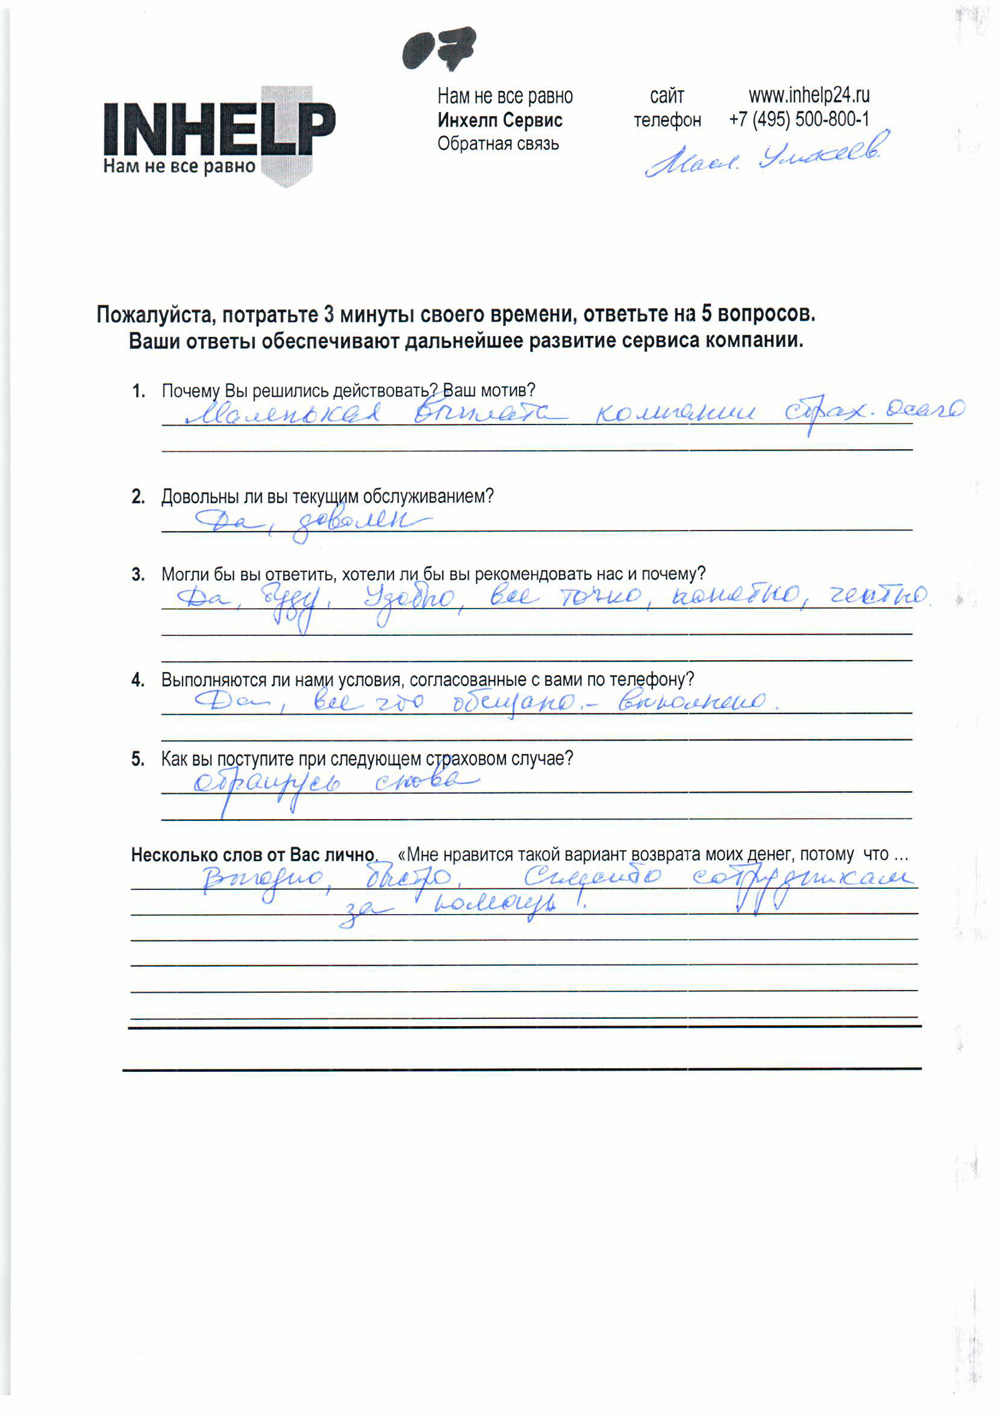 07
INHELP
Нам не все равно
Нам не все равно сайт www.inhelp24.ru
Инхелп Сервис телефон +7 (495) 500-800-1
Обратная связь
Пожалуйста, потратьте 3 минуты своего времени, ответьте на 5 вопросов.
Ваши ответы обеспечивают дальнейшее развитие сервиса компании.
1. Почему Вы решились действовать? Ваш мотив?
Маленькая выплата компании страх. осаго
2. Довольны ли вы текущим обслуживанием?
Да, доволен
3. Могли бы вы ответить, хотели ли бы вы рекомендовать нас и почему?
Да, буду. Удобно, все точно, понятно, честно.
4. Выполняются ли нами условия, согласованные с вами по телефону?
Да, все что обещано - выполнено.
5. Как вы поступите при следующем страховом случае?
обращусь снова
Несколько слов от Вас лично. «Мне нравится такой вариант возврата моих денег, потому что ...
Выгодно, быстро. Спасибо сотрудникам
за помощь!